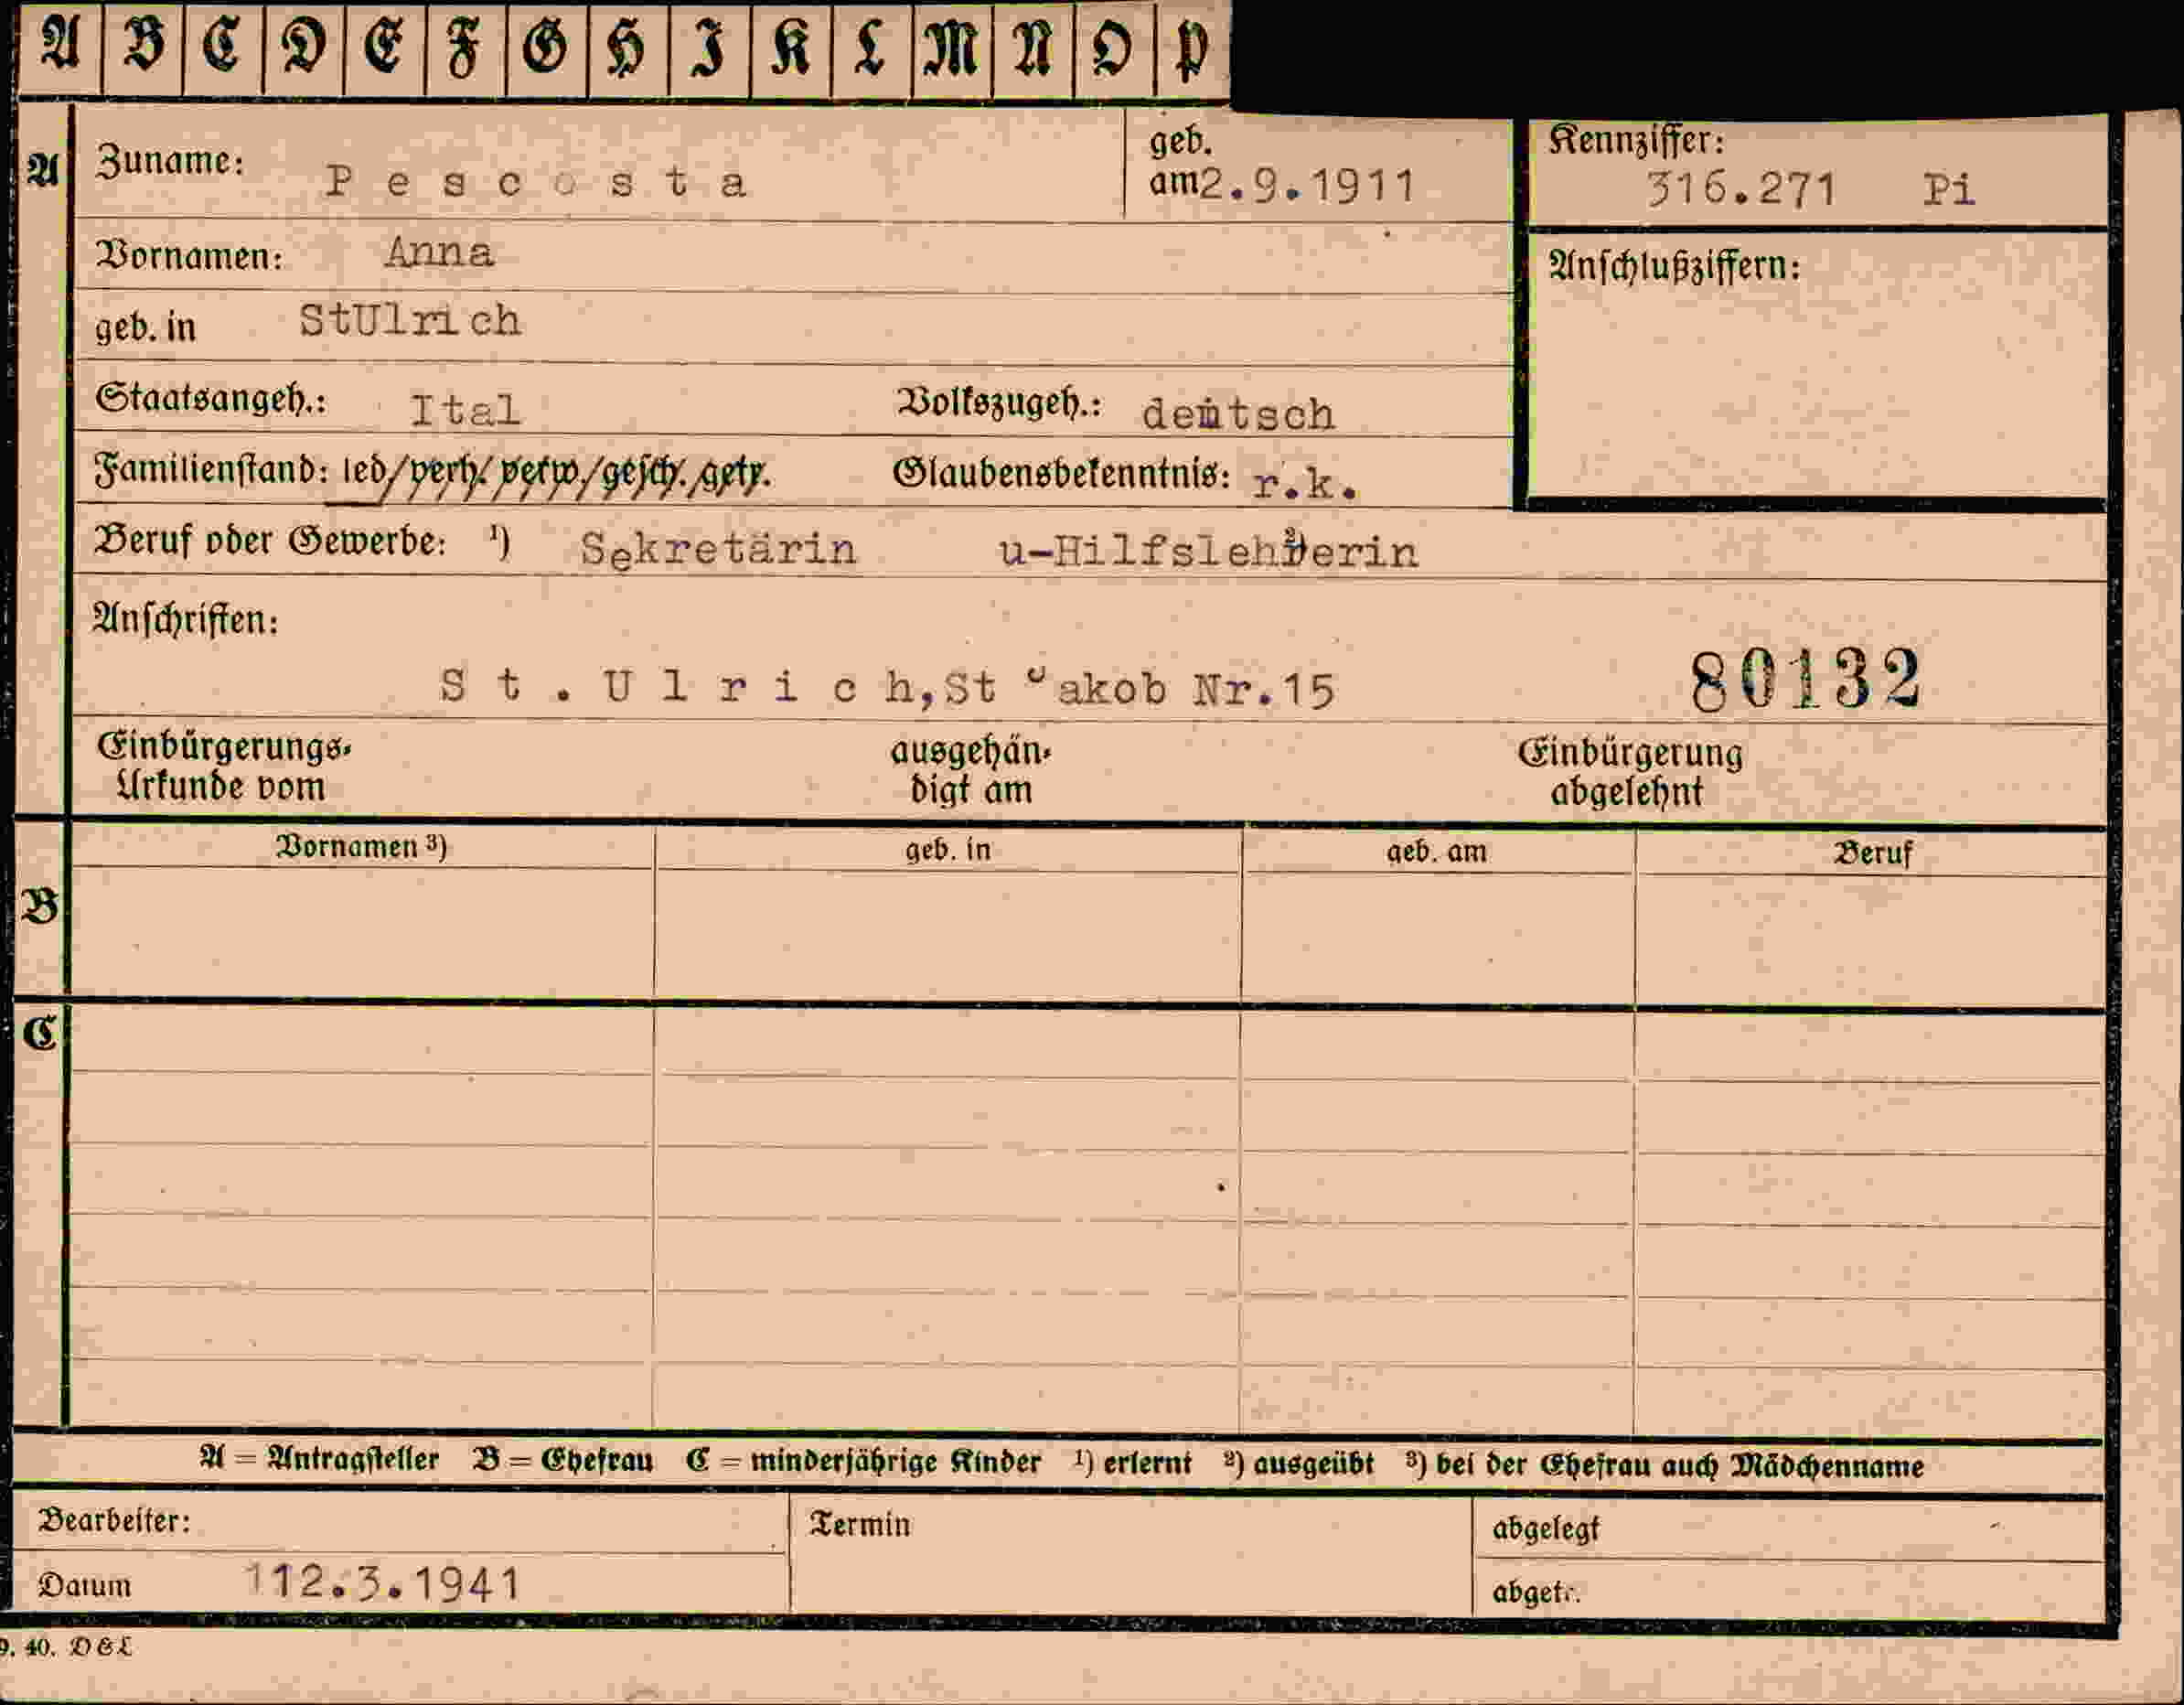 A B C D E F G H I K L M N O P
A Zuname: Pescosta geb. am 2.9.1911 Kennziffer: 316.271 Pi
Vornamen: Anna Anschlußziffern:
geb. in StUlrich
Staatsangeh.: Ital Volkszugeh.: deutsch
Familienstand: led/verh./verw/gesch./getr. Glaubensbekenntnis: r.k.
Beruf oder Gewerbe: ¹) Sekretärin u-Hilfslehrerin
Anschriften:
St.Ulrich,St Jakob Nr.15 80132
Einbürgerungs- ausgehän- Einbürgerung
Urkunde vom digt am abgelehnt
B Vornamen ³) geb. in geb. am Beruf
C
A = Antragsteller B = Ehefrau C = minderjährige Kinder ¹) erlernt ²) ausgeübt ³) bei der Ehefrau auch Mädchenname
Bearbeiter: Termin abgelegt
Datum 112.3.1941 abgetr.
9. 40. D&L